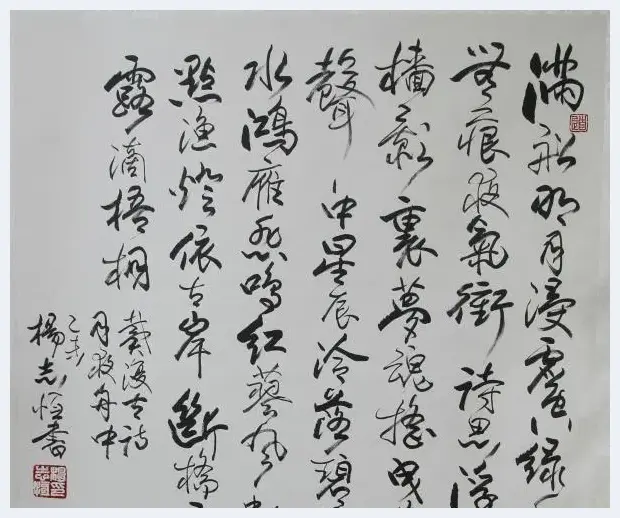 滿船明月浸虛空綠
無痕夜氣衝詩思浮
檣影裏夢魂搖曳
聲中星辰冷落碧
水鴻雁悲鳴紅蓼風
點漁燈依古岸斷橋
露滴梧桐
戴復古詩
月夜舟中
乙未
楊志恒書